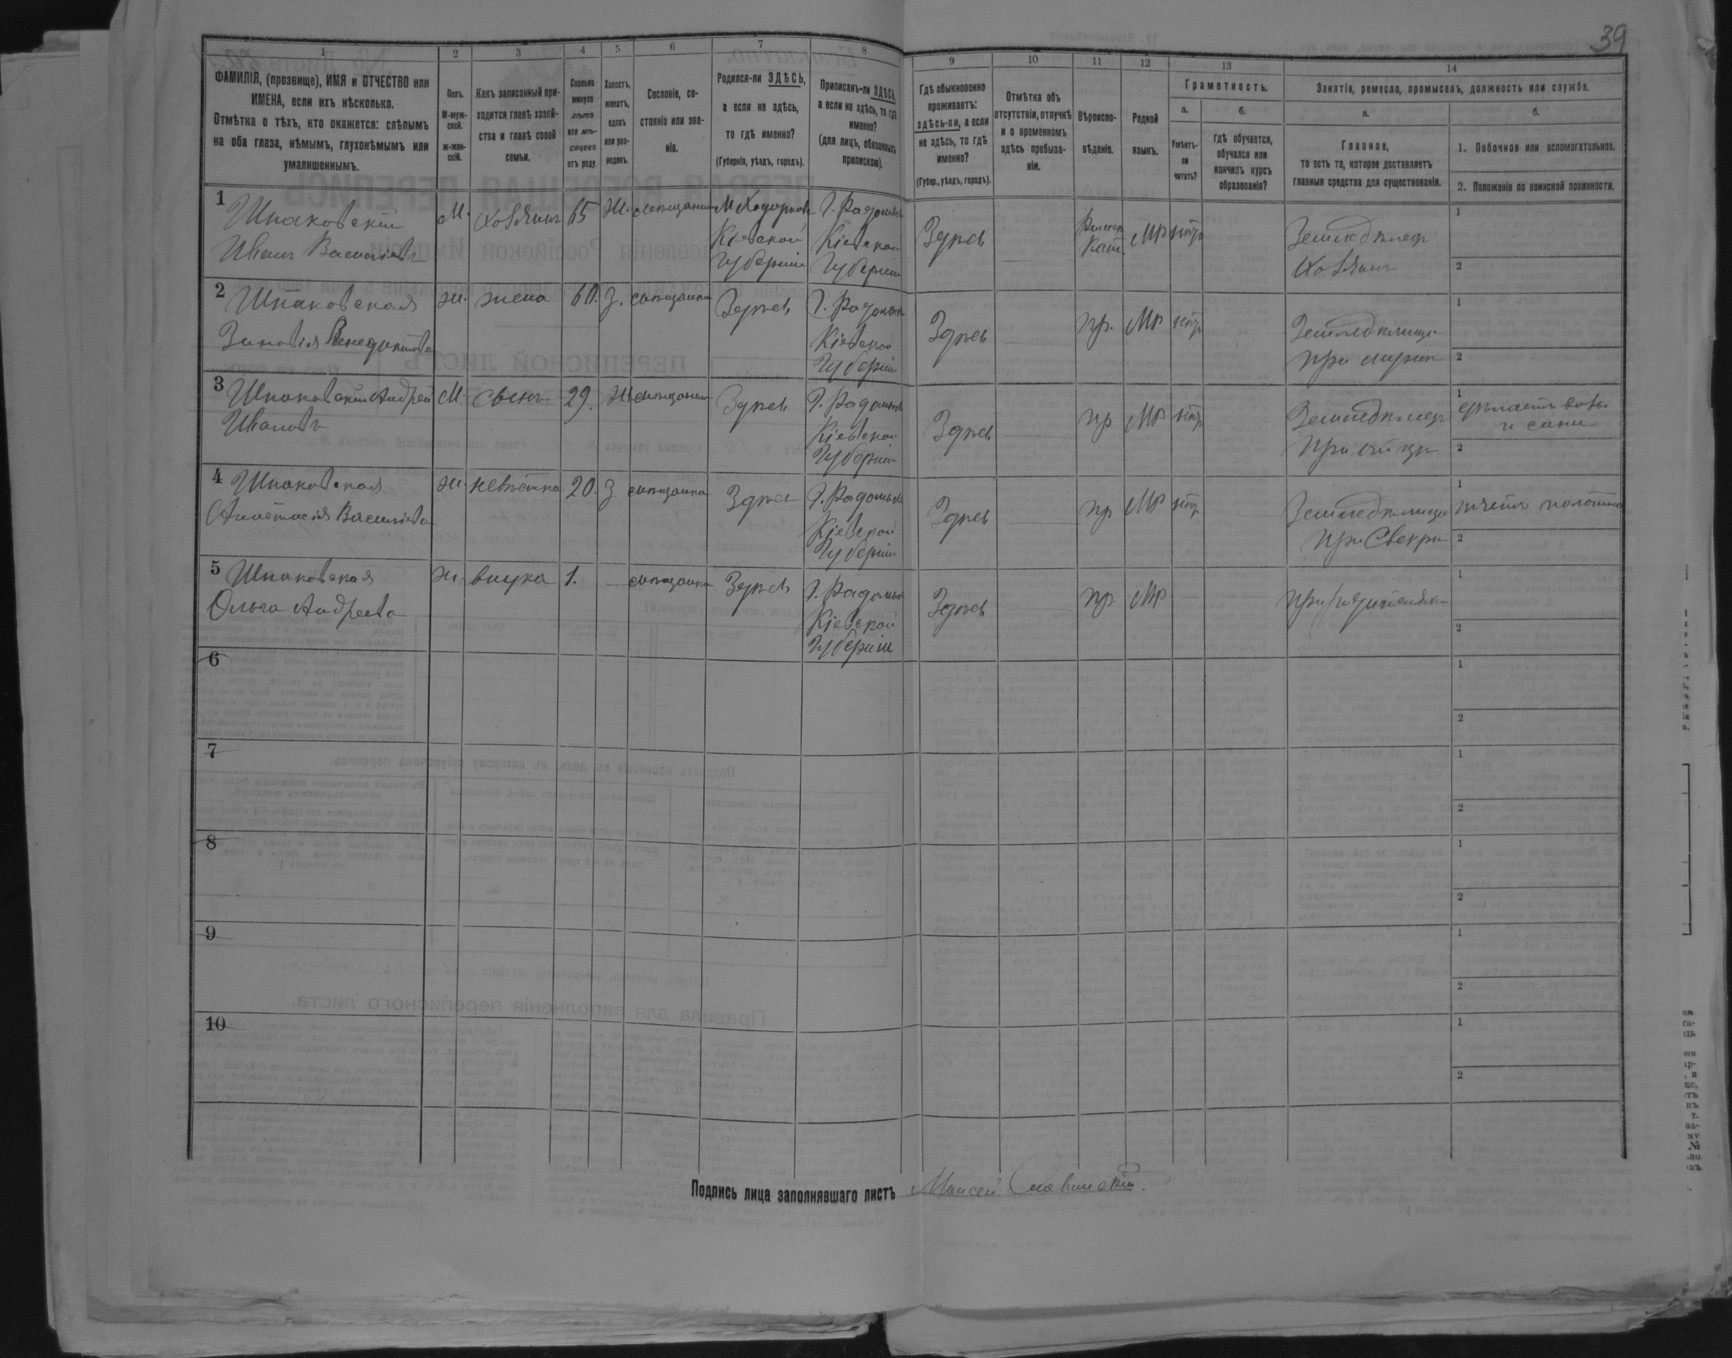 39
1 2 3 4 5 6 7 8 9 10 11 12 13 14
ФАМИЛІЯ, (прозвище), ИМЯ и ОТЧЕСТВО или
ИМЕНА, если ихъ нѣсколько.
Отмѣтка о тѣхъ, кто окажется: слѣпымъ
на оба глаза, нѣмымъ, глухонѣмымъ или
умалишеннымъ.
Полъ.
М-муж-
ской.
ж-жен-
скій.
Какъ записанный при-
ходится главѣ хозяй-
ства и главѣ своей
семьи.
Сколько
минуло
лѣтъ
или мѣ-
сяцевъ
отъ роду.
Холостъ,
женатъ,
вдовъ
или раз-
веденъ.
Сословіе, со-
стояніе или зва-
ніе.
Родился-ли ЗДѢСЬ,
а если не здѣсь,
то гдѣ именно?
(Губернія, уѣздъ, городъ).
Приписанъ-ли ЗДѢСЬ,
а если не здѣсь, то гдѣ
именно?
(для лицъ, обязанныхъ
припискою).
Гдѣ обыкновенно
проживаетъ:
здѣсь-ли, а если
не здѣсь, то гдѣ
именно?
(Губер., уѣздъ, городъ).
Отмѣтка объ
отсутствіи, отлучкѣ
и о временномъ
здѣсь пребыва-
ніи.
Вѣроиспо-
вѣданіе.
Родной
языкъ.
Грамотность.
а.
Умѣетъ-
ли
читать?
б.
Гдѣ обучается,
обучался или
кончилъ курсъ
образованія?
Занятіе, ремесло, промыселъ, должность или служба.
а.
Главное,
то есть то, которое доставляетъ
главныя средства для существованія.
б.
1. Побочное или вспомогательное.
2. Положеніе по воинской повинности.
1 Шпаковскій
Иванъ Васильевъ
М. Хозяинъ 65 Ж. мѣщанинъ
М Ходорковъ
Кіевской
Губерніи
Г. Радомысль
Кіевской
Губерніи
Здѣсь
Римско
Кат.
МР нѣтъ
Земледѣлецъ
Хозяинъ
1
2
2 Шпаковская
Зиновія Венедиктова
ж. жена 60. З. мѣщанка Здѣсь
Г. Радомысль
Кіевской
Губерніи
Здѣсь пр. МР нѣтъ
Земледѣлица
при мужѣ
1
2
3 Шпаковскій Андрей
Ивановъ
М. сынъ 29. Ж мѣщанинъ Здѣсь
Г. Радомысль
Кіевской
Губерніи
Здѣсь пр МР нѣтъ
Земледѣлецъ
при отцѣ
1 дѣлаетъ возы
и сани
2
4 Шпаковская
Анастасія Васильева
ж. невѣстка 20. З мѣщанка Здѣсь
Г. Радомысль
Кіевской
Губерніи
Здѣсь пр МР нѣтъ
Земледѣлица
при Свекрѣ
1 ткетъ полотно
2
5 Шпаковская
Ольга Андреева
ж. внучка 1. мѣщанка Здѣсь
Г. Радомысль
Кіевской
Губерніи
Здѣсь пр МР
при родителяхъ
1
2
6
1
2
7
1
2
8
1
2
9
1
2
10
1
2
Подпись лица заполнявшаго листъ Моисей